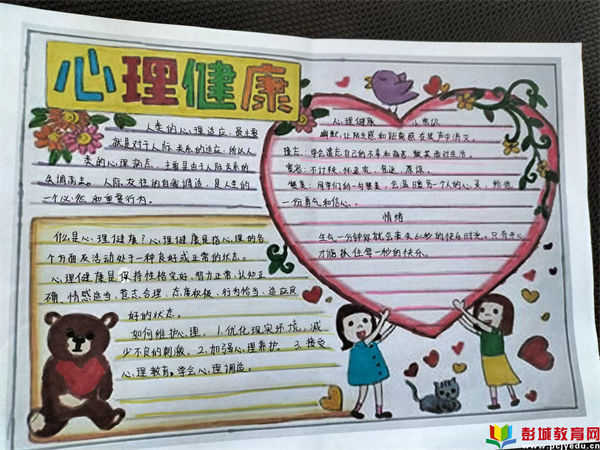 心理健康
人类的心理适应,最主要
就是对于人际关系的适应,所以人
类的心理病态,主要是由于人际关系的
失调而来。人际交往的自我调适,是人生的
一个必然和重要行为。
什么是心理健康?心理健康是指心理的各
个方面及活动处于一种良好或正常的状态。
心理健康是保持性格完好、智力正常、认知正
确、情感适当、意志合理、态度积极、行为恰当、适应良
好的状态。
如何维护心理 1.优化现实环境,减
少不良的刺激。2.加强心理养护。3.接受
心理教育,学会心理调适。
心理健康 小常识
幽默:让陌生感和距离感在笑声中消灭。
遗忘:学会遗忘自己的不幸和痛苦,微笑面对生活。
宽容:不计较、怀感突、包涵、原谅。
赞美:用幸们的一句赞美,会温暖另一个人的心灵,给他
一份勇气和信心。
情绪
生气一分钟你就会丧失60秒的快乐时光。只有开心
才能抓住每一秒的快乐。
彭城教育网
www.pcjyedu.cn